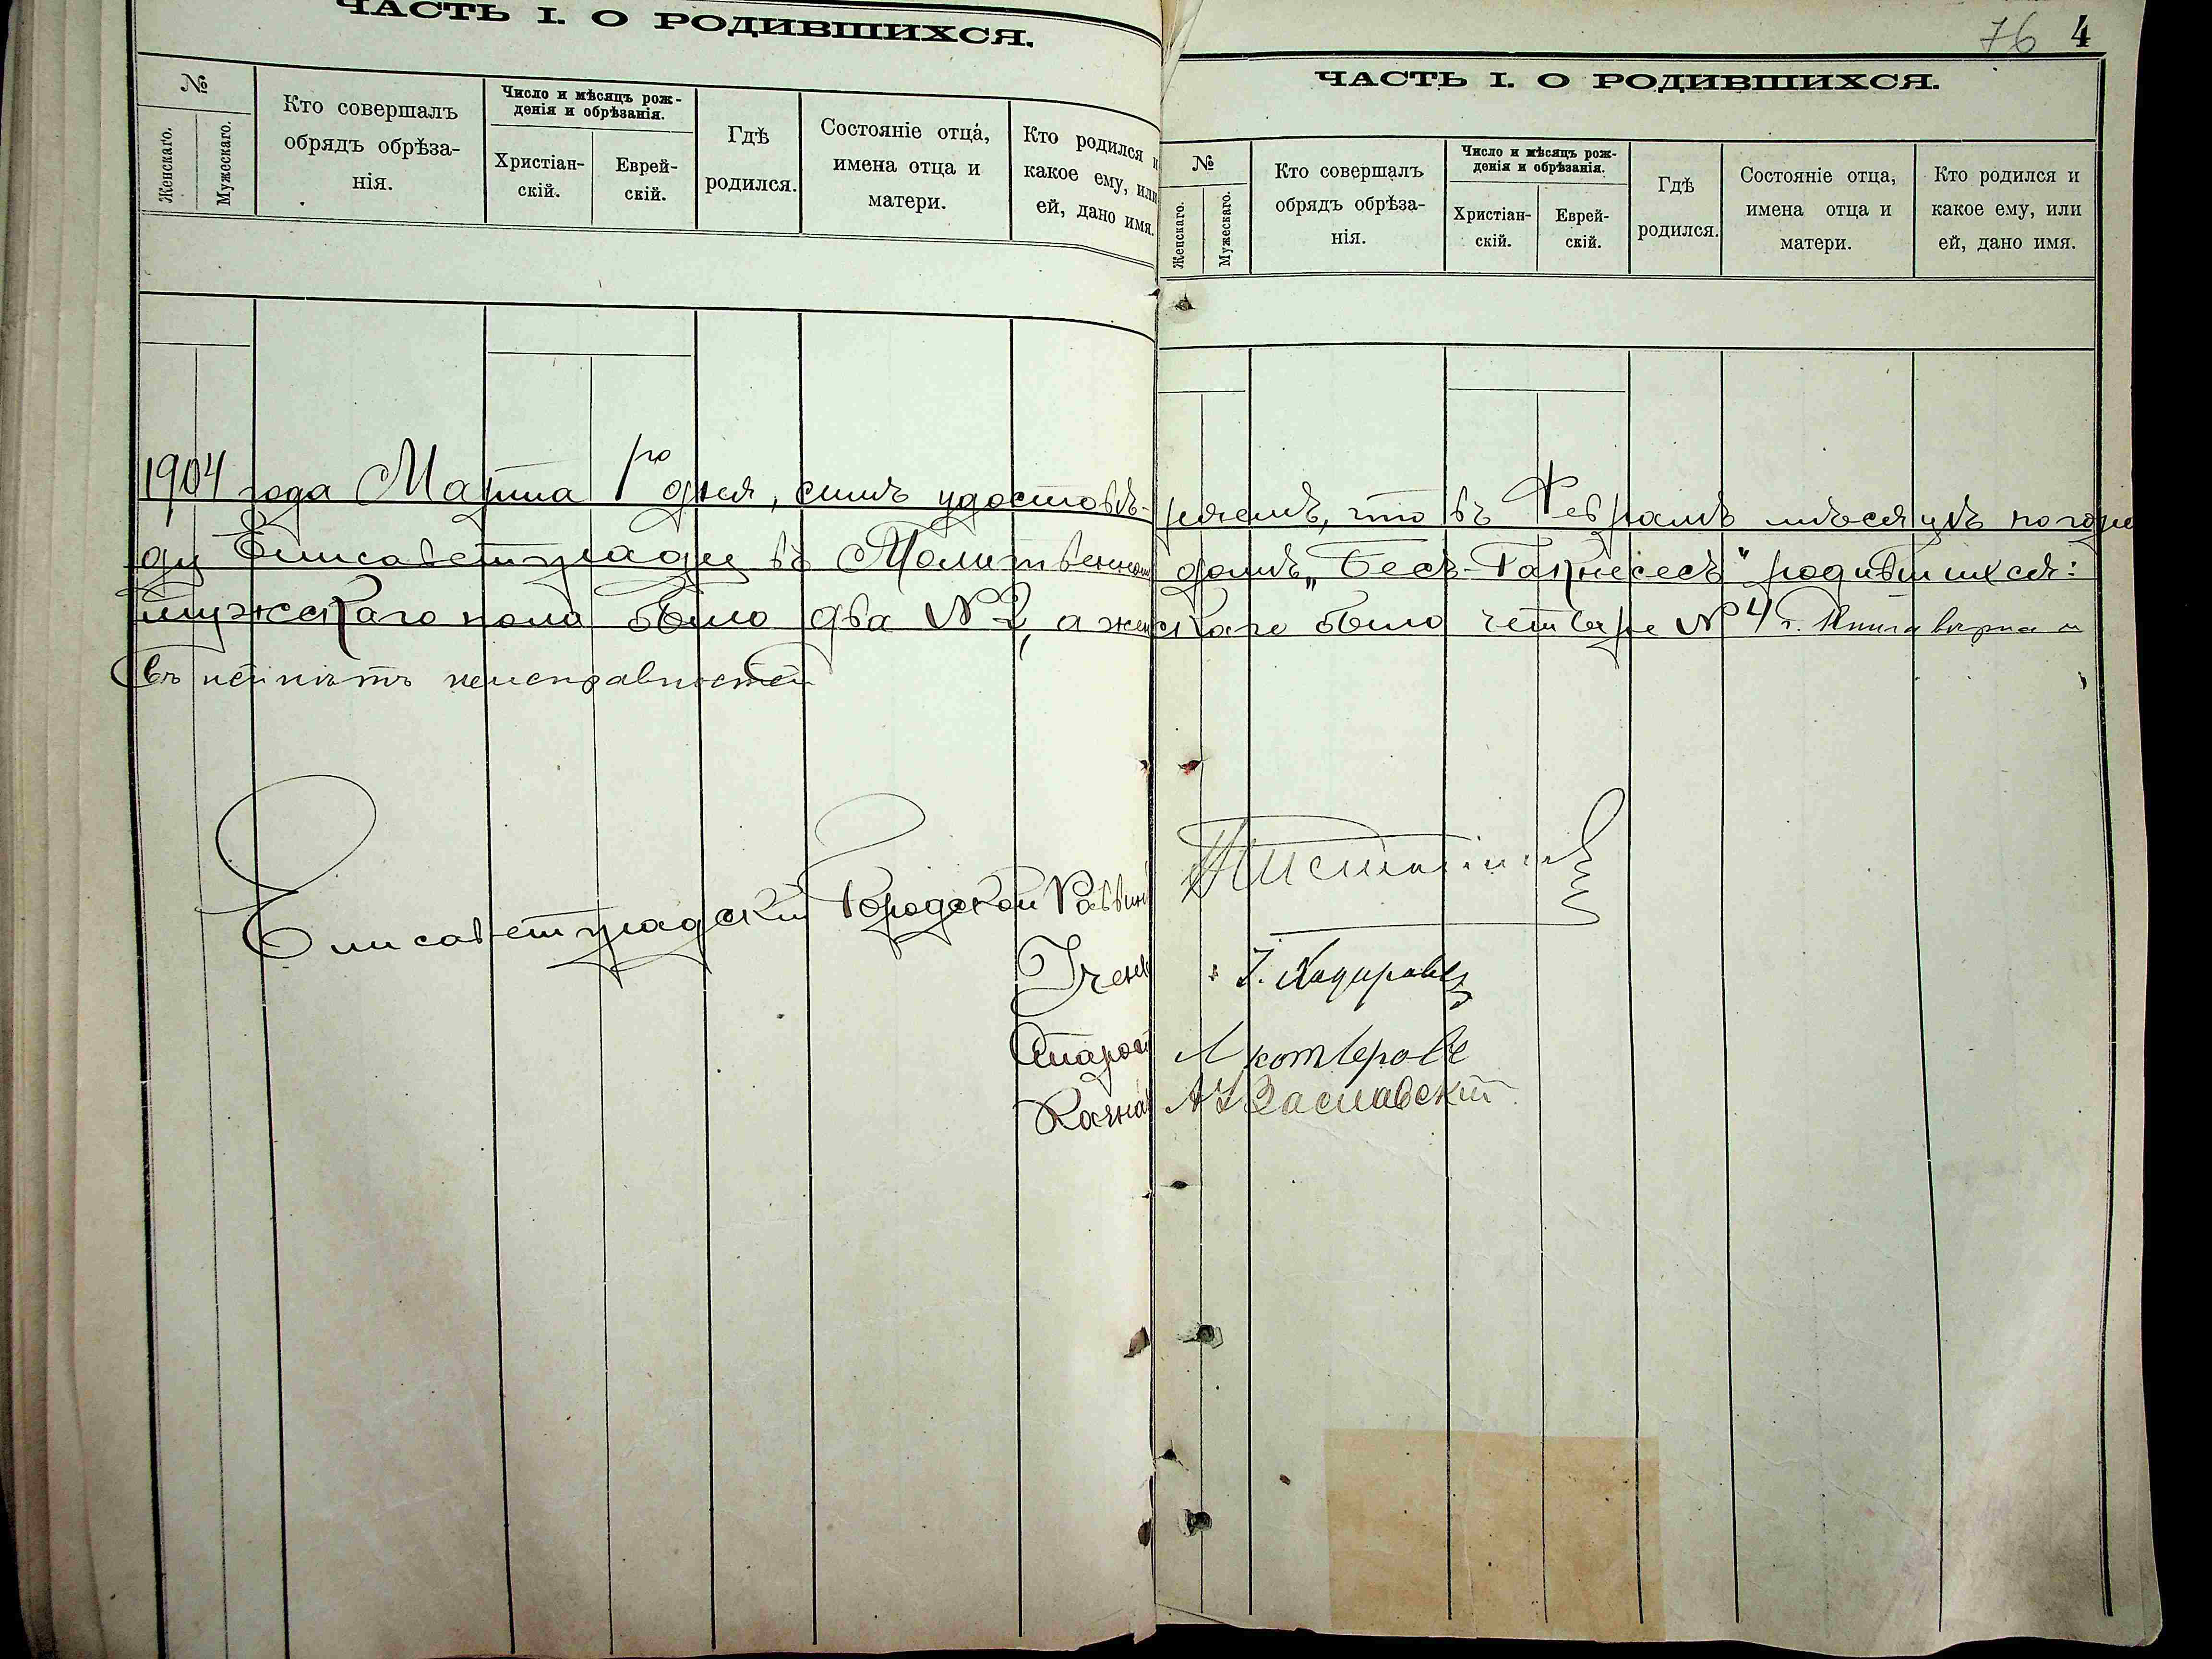 ЧАСТЬ I. О РОДИВШИХСЯ.
№
Женскаго.
Мужескаго.
Кто совершалъ
обрядъ обрѣза-
нія.
Число и мѣсяцъ рож-
денія и обрѣзанія.
Христіан-
скій.
Еврей-
скій.
Гдѣ
родился.
Состояніе отца,
имена отца и
матери.
Кто родился и
какое ему, или
ей, дано имя.
76 4
ЧАСТЬ I. О РОДИВШИХСЯ.
№
Женскаго.
Мужескаго.
Кто совершалъ
обрядъ обрѣза-
нія.
Число и мѣсяцъ рож-
денія и обрѣзанія.
Христіан-
скій.
Еврей-
скій.
Гдѣ
родился.
Состояніе отца,
имена отца и
матери.
Кто родился и
какое ему, или
ей, дано имя.
1904 года Марта 1го дня, симъ удостовѣ- ряемъ, что въ Февралѣ мѣсяцѣ по горо
ду Елисаветграду въ Молитвенномъ домѣ „Бесъ-Гакнесесъ" родившихся:
мужскаго пола было два № 2, а женскаго было четыре № 4. Книга вѣрна и
въ ней нѣтъ неисправностей
Елисаветградскій Городской Раввинъ
Учен
Старост Л Котляровъ
Казнач Заславскій